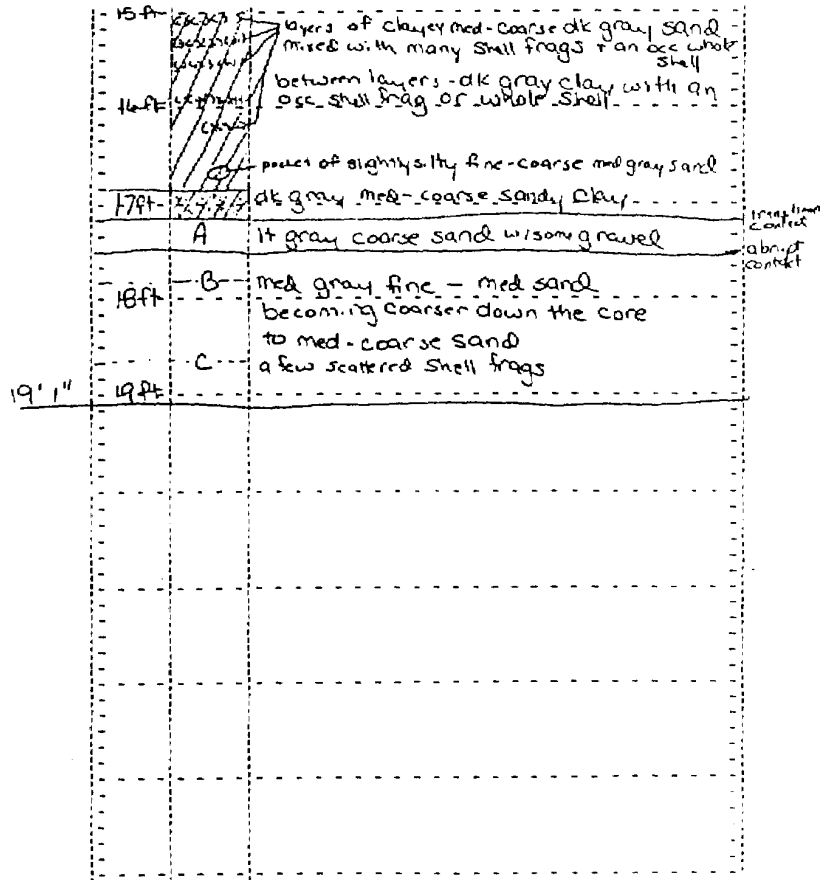 15 ft
layers of clayey med-coarse dk gray sand
mixed with many shell frags + an occ whole
shell
between layers - dk gray clay with an
16 ft
occ shell frag or whole shell
pocket of slightly silty fine-coarse med gray sand
17 ft
dk gray med-coarse sandy clay
contact
A
lt gray coarse sand w/some gravel
abrupt
contact
B
med gray fine - med sand
18 ft
becoming coarser down the core
to med-coarse sand
C
a few scattered shell frags
19'1"
19 ft